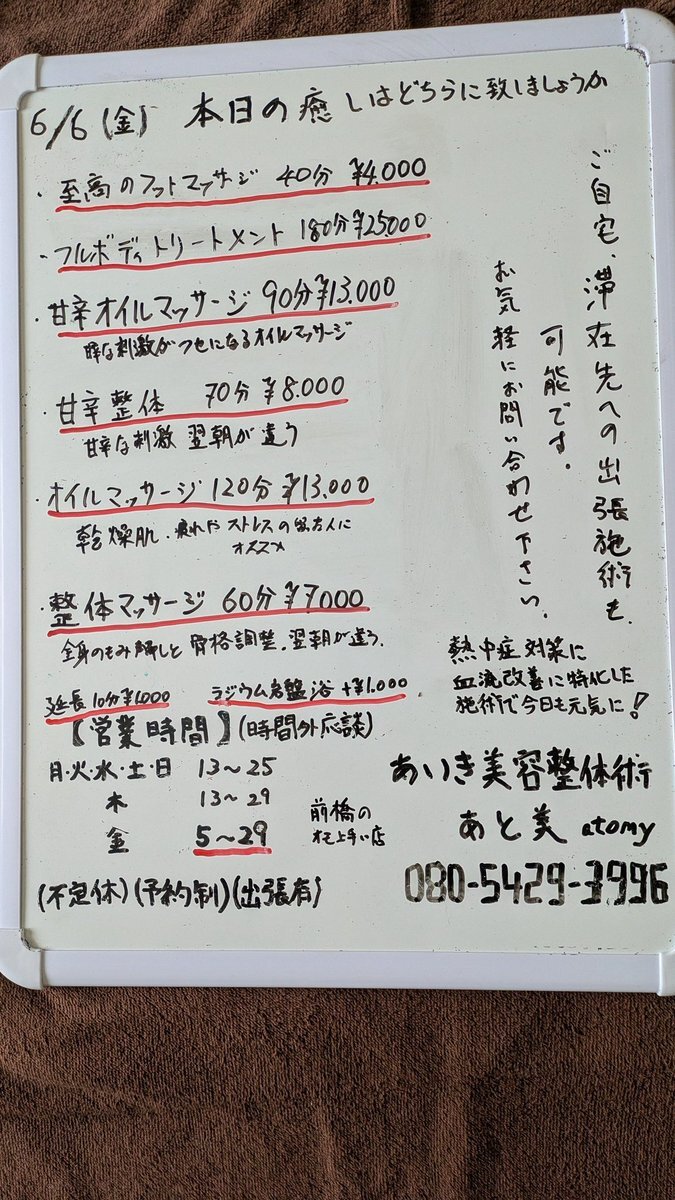 6/6(金) 本日の癒しはどちらに致しましょうか
・至高のフットマッサージ 40分 ¥4.000
・フルボディトリートメント 180分¥25000
・甘辛オイルマッサージ 90分¥13.000
な刺激がクセになるオイルマッサージ
・甘辛整体 70分 ¥8.000
甘辛な刺激 翌朝が違う
・オイルマッサージ 120分 ¥13.000
乾燥肌・疲れやストレスの
オススメ
・整体マッサージ 60分 ¥7000
全身のもみ解しと骨格調整。翌朝が違う。
延長10分¥1.000 ラジウム岩盤浴 +¥1.000
【営業時間】(時間外応談)
月・火・水・土・日 13〜25
木 13〜29
金 5〜29
前橋の
上手い店
(不定休)(予約制)(出張有)
ご自宅、滞在先への出張施術も
可能です。
お気軽にお問い合わせ下さい。
熱中症対策に
血流改善に特化した
施術で今日も元気に!
あいき美容整体術
あと美 atomy
080-5429-3996